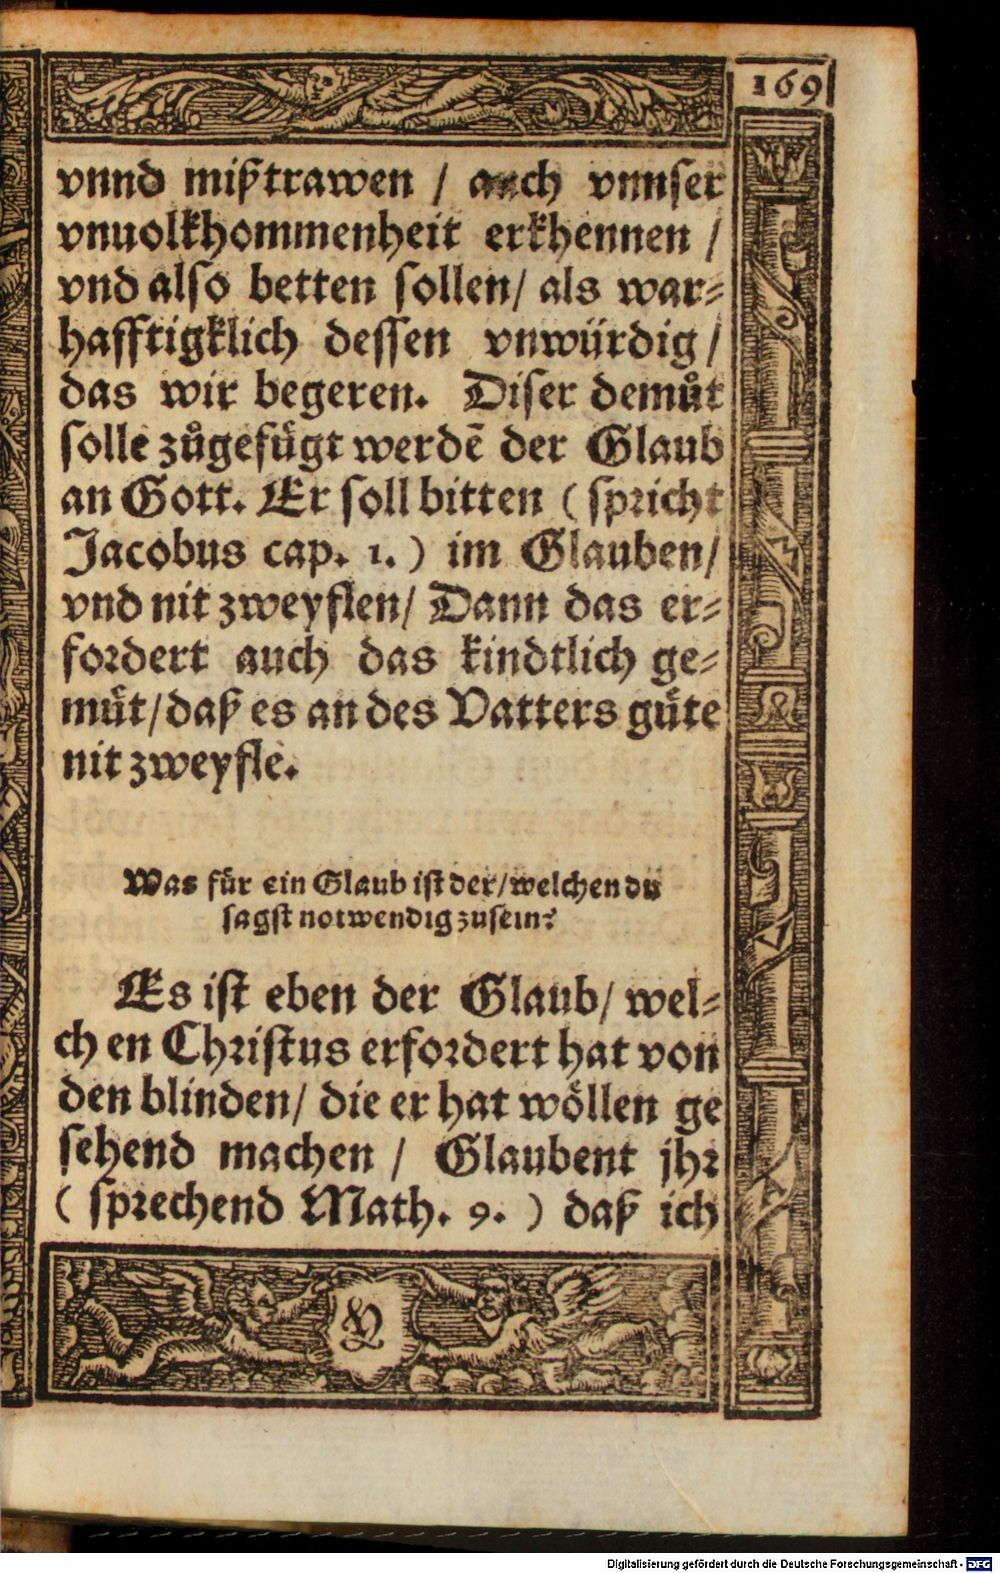 169
vnnd mißtrawen / auch vnnser
vnuolkhommenheit erkhennen /
vnd also betten sollen/ als war⸗
hafftigklich dessen vnwürdig /
das wir begeren. Diser demůt
solle zůgefügt werdẽ der Glaub
an Gott. Er soll bitten ( spricht
Jacobus cap. 1. ) im Glauben/
vnd nit zweyflen/ Dann das er⸗
fordert auch das kindtlich ge⸗
müt/daß es an des Vatters güte
nit zweyfle.
Was für ein Glaub ist der/welchen du
sagst notwendig zusein?
Es ist eben der Glaub/ wel⸗
chen Christus erfordert hat von
den blinden/ die er hat wöllen ge
sehend machen / Glaubent jhr
( sprechend Math. 9. ) daß ich
Digitalisierung gefördert durch die Deutsche Forschungsgemeinschaft - DFG